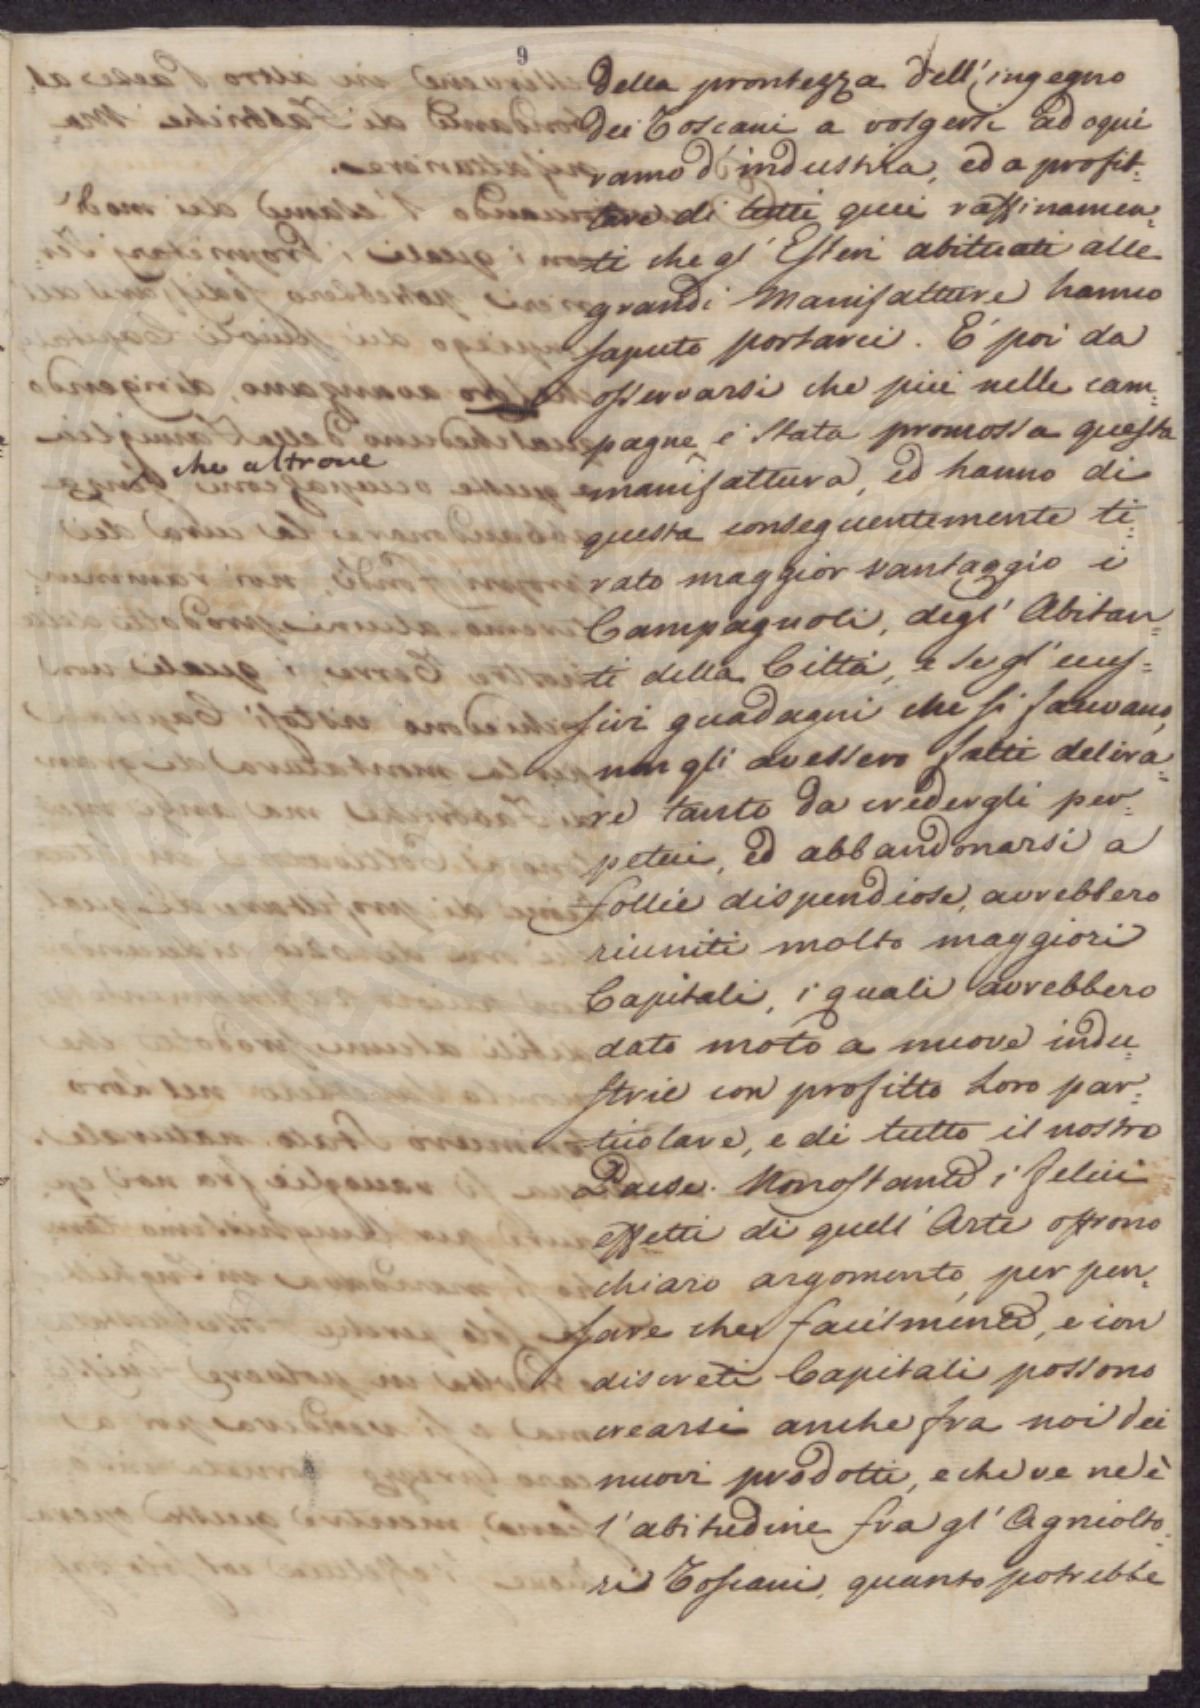 9
della prontezza dell'ingegno
dei Toscani a volgersi ad ogni
ramo d'industria, ed a profit=
tare di tutti quei raffinamen=
ti che gl'Esteri abituati alle
grandi Manifatture hanno
saputo portarci. È poi da
osservarsi che più nelle cam=
pagne è stata promossa questa
che altrove
manifattura, ed hanno di
questa conseguentemente ti=
rato maggior vantaggio i
Campagnoli, degl'Abitan=
ti della Città, e se gl'eces=
sivi guadagni che si facevano,
non gli avessero fatti delira=
re tanto da credergli per=
petui, ed abbandonarsi a
follie dispendiose, avrebbero
riuniti molto maggiori
Capitali, i quali avrebbero
dato moto a nuove indu=
strie con profitto loro par=
ticolare, e di tutto il nostro
Paese. Nonostante i felici
effetti di quell'Arte offrono
chiaro argomento per pen=
sare che facilmente, e con
discreti Capitali possono
crearsi anche fra noi dei
nuovi prodotti, e che ve ne è
l'abitudine fra gl'Agricolto=
ri Toscani, quanto potrebbe